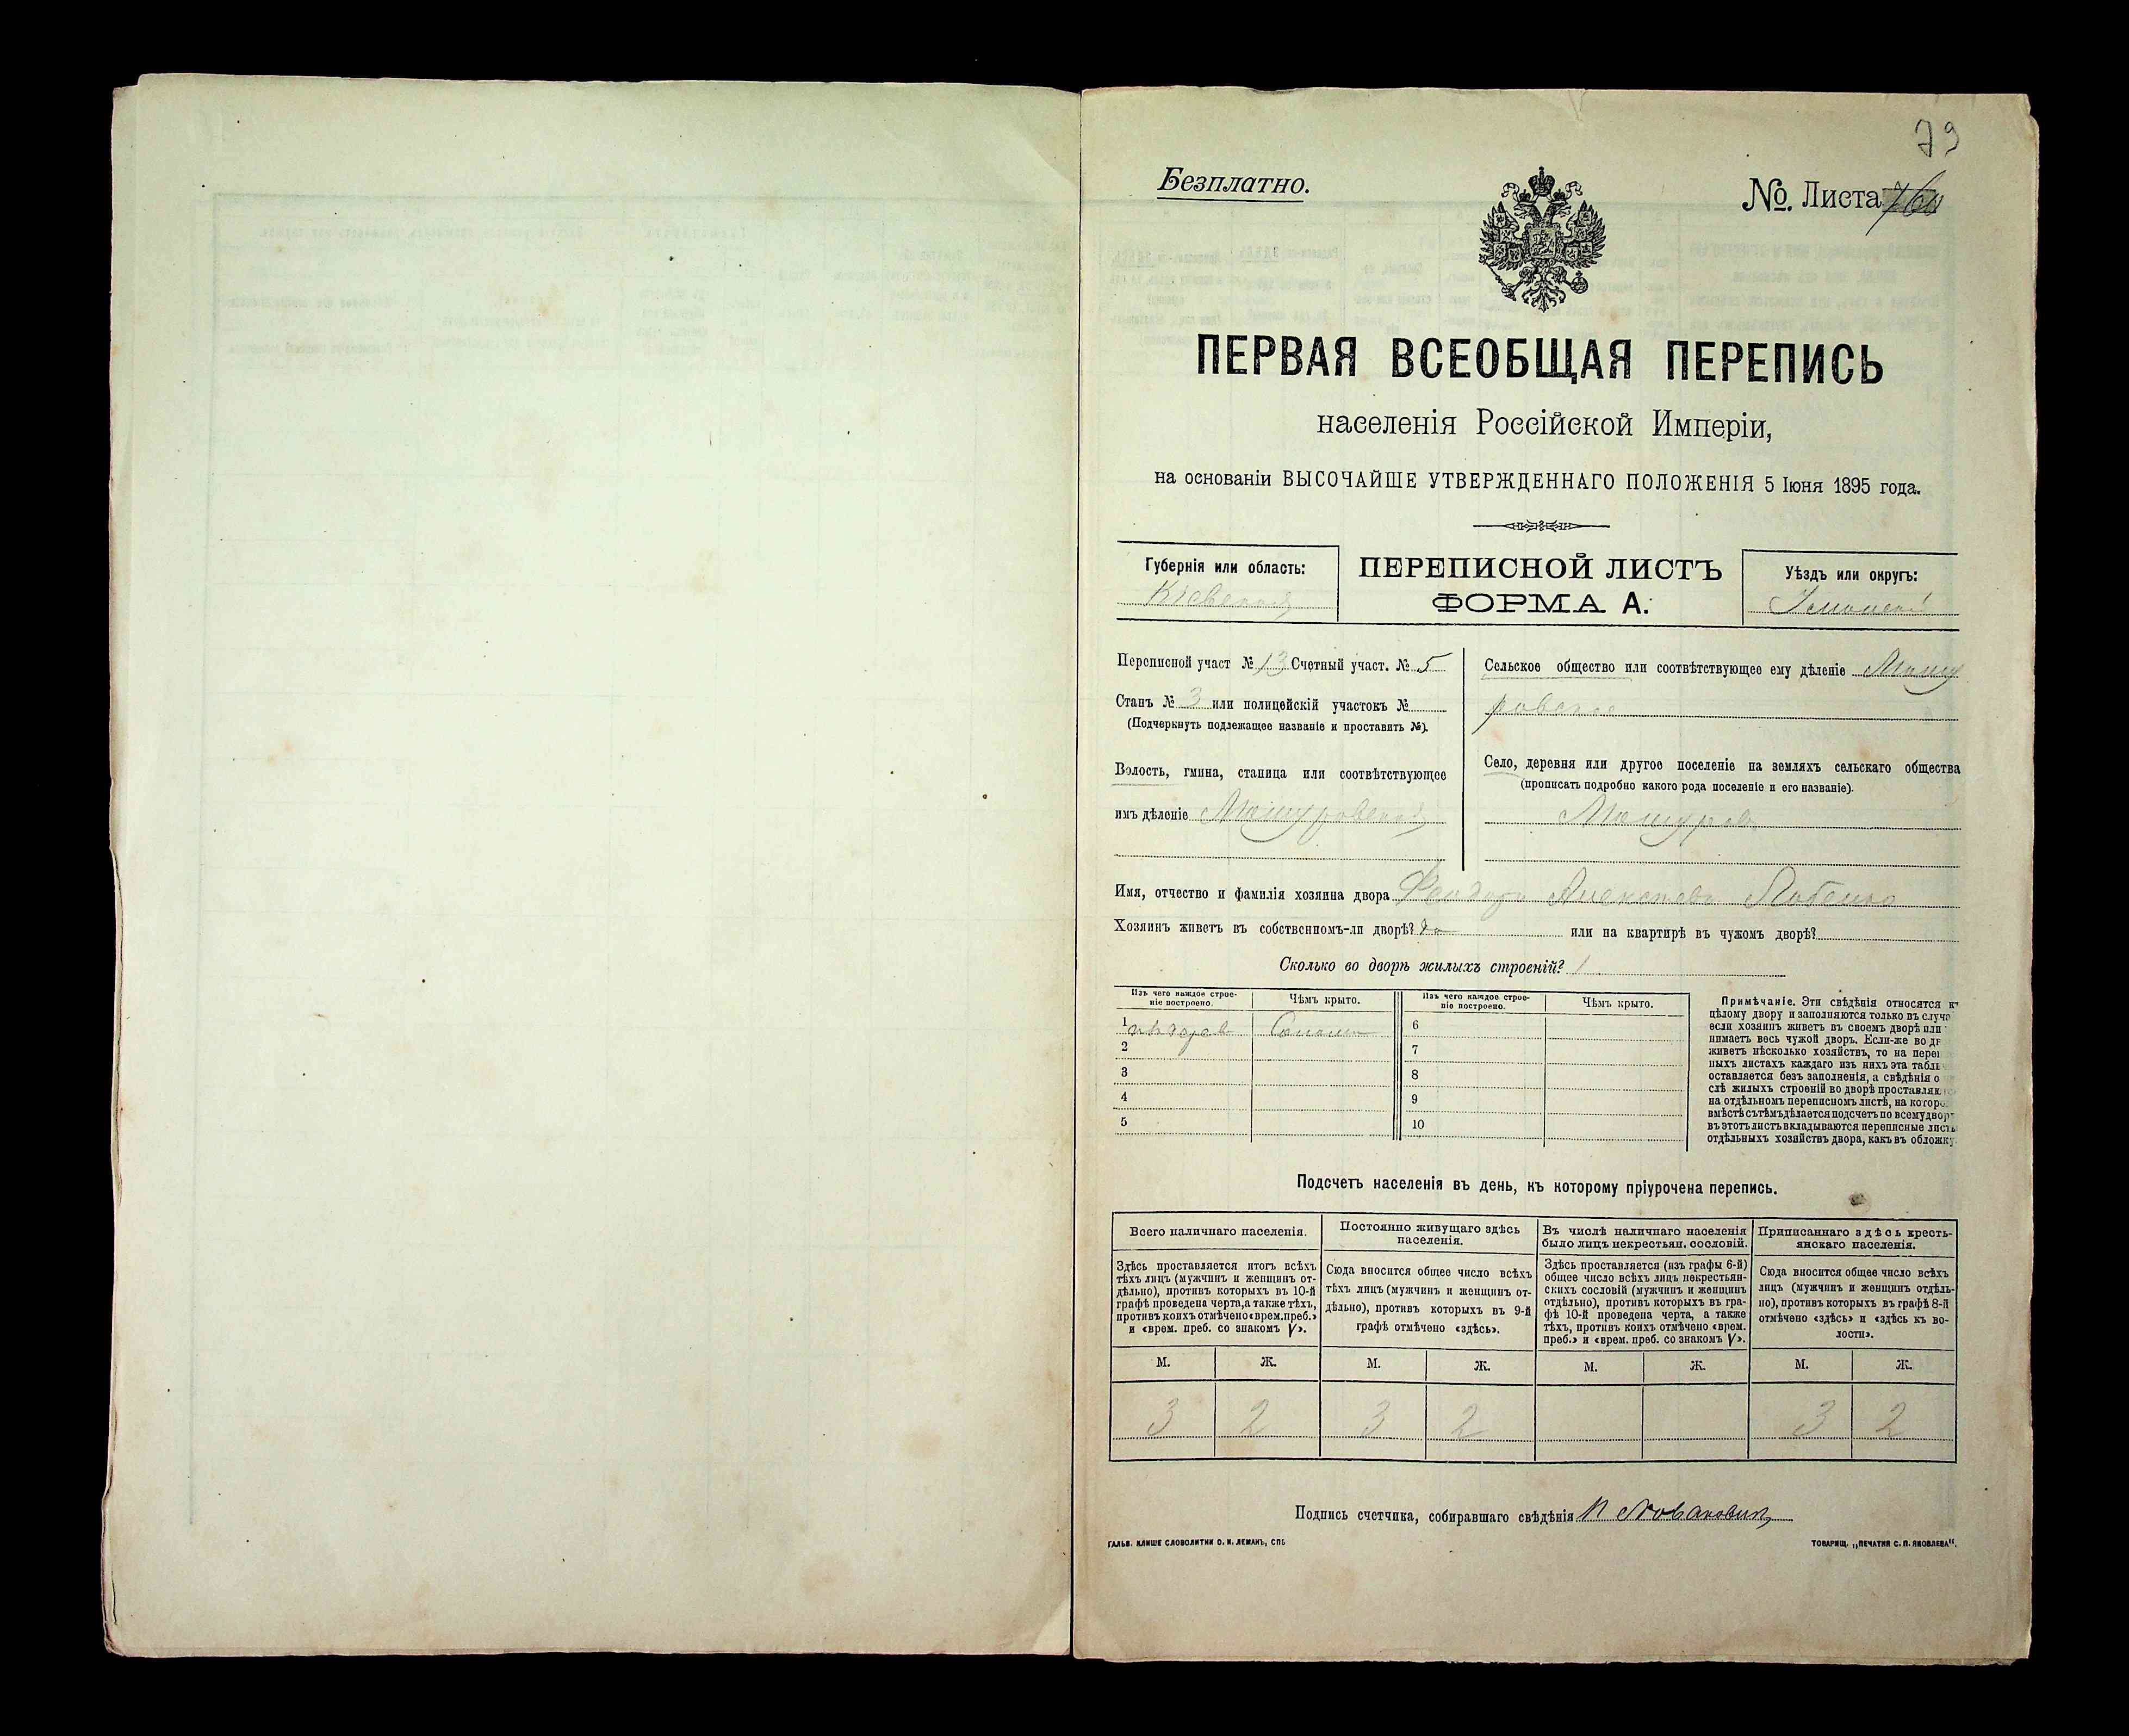 79
Безплатно.
№. Листа
ПЕРВАЯ ВСЕОБЩАЯ ПЕРЕПИСЬ
населенія Россійской Имперіи,
на основаніи ВЫСОЧАЙШЕ УТВЕРЖДЕННАГО ПОЛОЖЕНІЯ 5 Іюня 1895 года.
Губернія или область:
Кіевская
ПЕРЕПИСНОЙ ЛИСТЪ
ФОРМА А.
Уѣздъ или округъ:
Уманскій
Переписной участ № 13 Счетный участ. № 5
Станъ № 3 или полицейскій участокъ №
(Подчеркнуть подлежащее названіе и проставить №).
Волость, гмина, станица или соотвѣтствующее
имъ дѣленіе Машуровская
Сельское общество или соотвѣтствующее ему дѣленіе Машу
ровское
Село, деревня или другое поселеніе на земляхъ сельскаго общества
(прописать подробно какого рода поселеніе и его названіе).
Машуровъ
Имя, отчество и фамилія хозяина двора Феодоръ Алексѣевъ
Хозяинъ живетъ въ собственномъ-ли дворѣ? да или на квартирѣ въ чужомъ дворѣ?
Сколько во дворѣ жилыхъ строеній? 1
Изъ чего каждое строе-
ніе построено.
Чѣмъ крыто.
Изъ чего каждое строе-
ніе построено.
Чѣмъ крыто.
1 Солом
2
3
4
5
6
7
8
9
10
Примѣчаніе. Эти свѣдѣнія относятся к
цѣлому двору и заполняются только въ случа
если хозяинъ живетъ въ своемъ дворѣ или
нимаетъ весь чужой дворъ. Если-же во дв
живетъ нѣсколько хозяйствъ, то на переп
ныхъ листахъ каждаго изъ нихъ эта табли
оставляется безъ заполненія, а свѣдѣнія о
слѣ жилыхъ строеній во дворѣ проставляю
на отдѣльномъ переписномъ листѣ, на которо
вмѣстѣ съ тѣмъ дѣлается подсчетъ по всему двор
въ этотъ листъ вкладываются переписные листы
отдѣльныхъ хозяйствъ двора, какъ въ обложку
Подсчетъ населенія въ день, къ которому пріурочена перепись.
Всего наличнаго населенія.
Здѣсь проставляется итогъ всѣхъ
тѣхъ лицъ (мужчинъ и женщинъ от-
дѣльно), противъ которыхъ въ 10-й
графѣ проведена черта, а также тѣхъ,
противъ коихъ отмѣчено «врем. преб.»
и «врем. преб. со знакомъ V».
Постоянно живущаго здѣсь
населенія.
Сюда вносится общее число всѣхъ
тѣхъ лицъ (мужчинъ и женщинъ от-
дѣльно), противъ которыхъ въ 9-й
графѣ отмѣчено «здѣсь».
Въ числѣ наличнаго населенія
было лицъ некрестьян. сословій.
Здѣсь проставляется (изъ графы 6-й)
общее число всѣхъ лицъ некрестьян-
скихъ сословій (мужчинъ и женщинъ
отдѣльно), противъ которыхъ въ гра-
фѣ 10-й проведена черта, а также
тѣхъ, противъ коихъ отмѣчено «врем.
преб.» и «врем. преб. со знакомъ V».
Приписаннаго здѣсь кресть-
янскаго населенія.
Сюда вносится общее число всѣхъ
лицъ (мужчинъ и женщинъ отдѣль-
но), противъ которыхъ въ графѣ 8-й
отмѣчено «здѣсь» и «здѣсь къ во-
лости».
М. Ж. М. Ж. М. Ж. М. Ж.
3 2 3 2 3 2
Подпись счетчика, собиравшаго свѣдѣнія
ГАЛЬВ. КЛИШЕ СЛОВОЛИТНИ О. И. ЛЕМАНЪ, СПБ
ТОВАРИЩ. „ПЕЧАТНЯ С. П. ЯКОВЛЕВА".